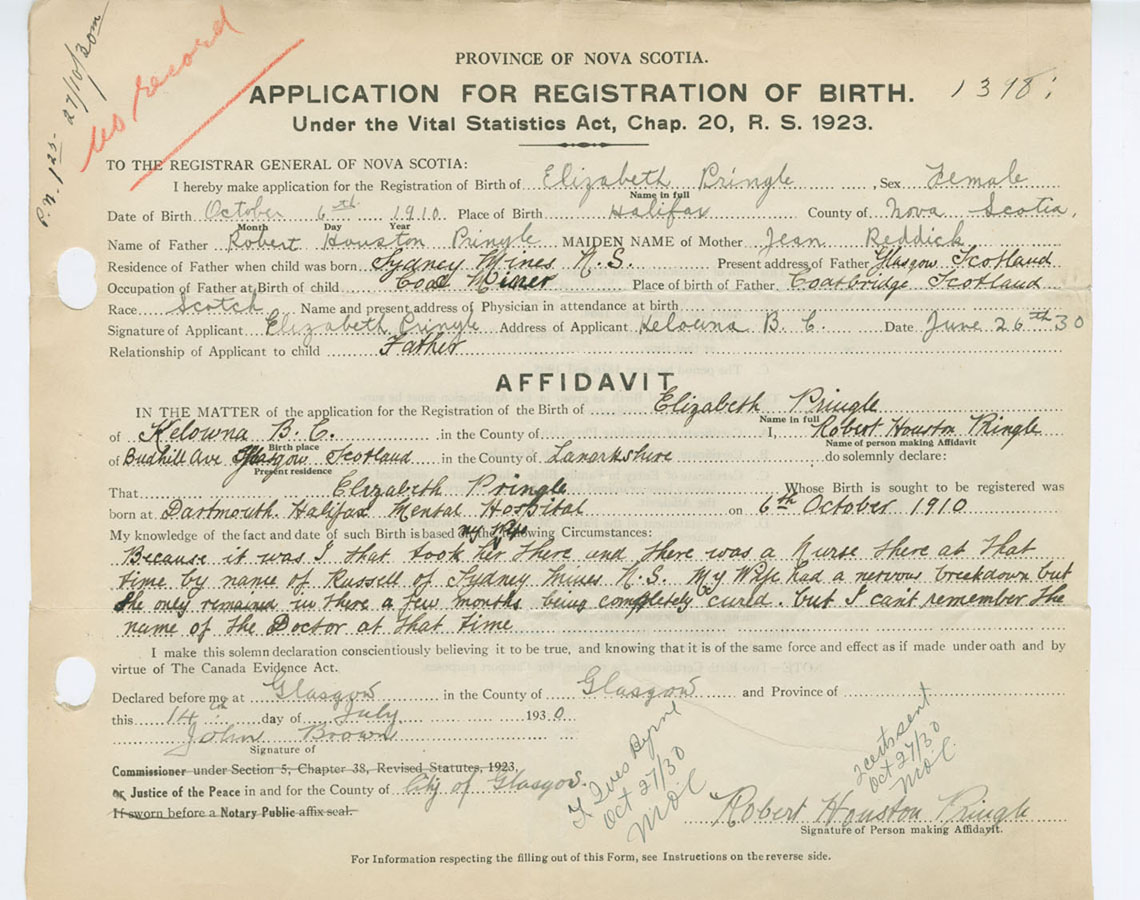 27/10/30 m
P.N. 125-
No record
PROVINCE OF NOVA SCOTIA.
APPLICATION FOR REGISTRATION OF BIRTH. 1398
Under the Vital Statistics Act, Chap. 20, R. S. 1923.
TO THE REGISTRAR GENERAL OF NOVA SCOTIA:
I hereby make application for the Registration of Birth of Elizabeth Pringle, Sex Female
Name in full
Date of Birth October 6th 1910 Place of Birth Halifax County of Nova Scotia.
Month Day Year
Name of Father Robert Houston Pringle MAIDEN NAME of Mother Jean Reddick
Residence of Father when child was born Sydney Mines N.S. Present address of Father Glasgow Scotland
Occupation of Father at Birth of child Coal Miner Place of birth of Father Coatbridge Scotland
Race Scotch Name and present address of Physician in attendance at birth
Signature of Applicant Elizabeth Pringle Address of Applicant Kelowna B. C. Date June 26th 30
Relationship of Applicant to child Father
AFFIDAVIT
IN THE MATTER of the application for the Registration of the Birth of Elizabeth Pringle
Name in full
of Kelowna B. C. in the County of I, Robert Houston Pringle
Birth place Name of person making Affidavit
of Budhill Ave Glasgow Scotland in the County of Lanarkshire do solemnly declare:
Present residence
That Elizabeth Pringle Whose Birth is sought to be registered was
born at Dartmouth. Halifax Mental Hospital on 6th October 1910
My knowledge of the fact and date of such Birth is based on the following Circumstances:
my Wife
Because it was I that took her there and there was a Nurse there at that
time by name of Russell of Sydney Mines N.S. My Wife had a nervous breakdown but
she only remained in there a few months being completely cured. but I can't remember the
name of the Doctor at that time
I make this solemn declaration conscientiously believing it to be true, and knowing that it is of the same force and effect as if made under oath and by
virtue of The Canada Evidence Act.
Declared before me at Glasgow in the County of Glasgow and Province of
this 14th day of July 1930
John Brown
Signature of
Commissioner under Section 5, Chapter 38, Revised Statutes, 1923,
or Justice of the Peace in and for the County of City of Glasgow.
If sworn before a Notary Public affix seal.
Oct 27/30
MOC
2 certs sent
Oct 27/30
MOC
Robert Houston Pringle
Signature of Person making Affidavit.
For Information respecting the filling out of this Form, see Instructions on the reverse side.